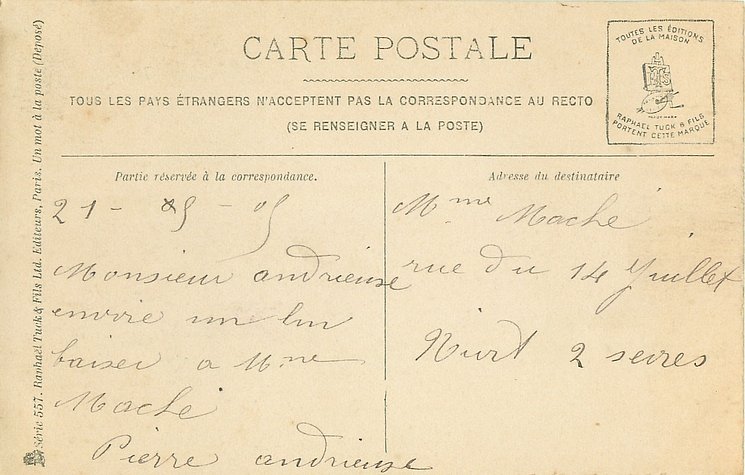 CARTE POSTALE
TOUS LES PAYS ÉTRANGERS N'ACCEPTENT PAS LA CORRESPONDANCE AU RECTO
(SE RENSEIGNER A LA POSTE)
TOUTES LES ÉDITIONS
DE LA MAISON
RAPHAEL TUCK & FILS
PORTENT CETTE MARQUE
Série 557. Raphaël Tuck & Fils Ltd. Editeurs, Paris. Un mot à la poste (Déposé)
Partie réservée à la correspondance.
21 -
Monsieur andrieuse
envoie un
baiser a Mme
Maché
Pierre andrieuse
Adresse du destinataire
Mme Maché
rue du 14 Juillet
Niort 2 sevres